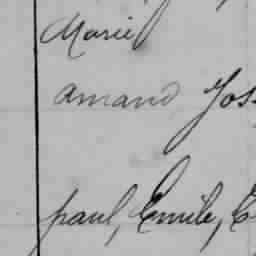 Marie
amand Jos
paul, Emile, E